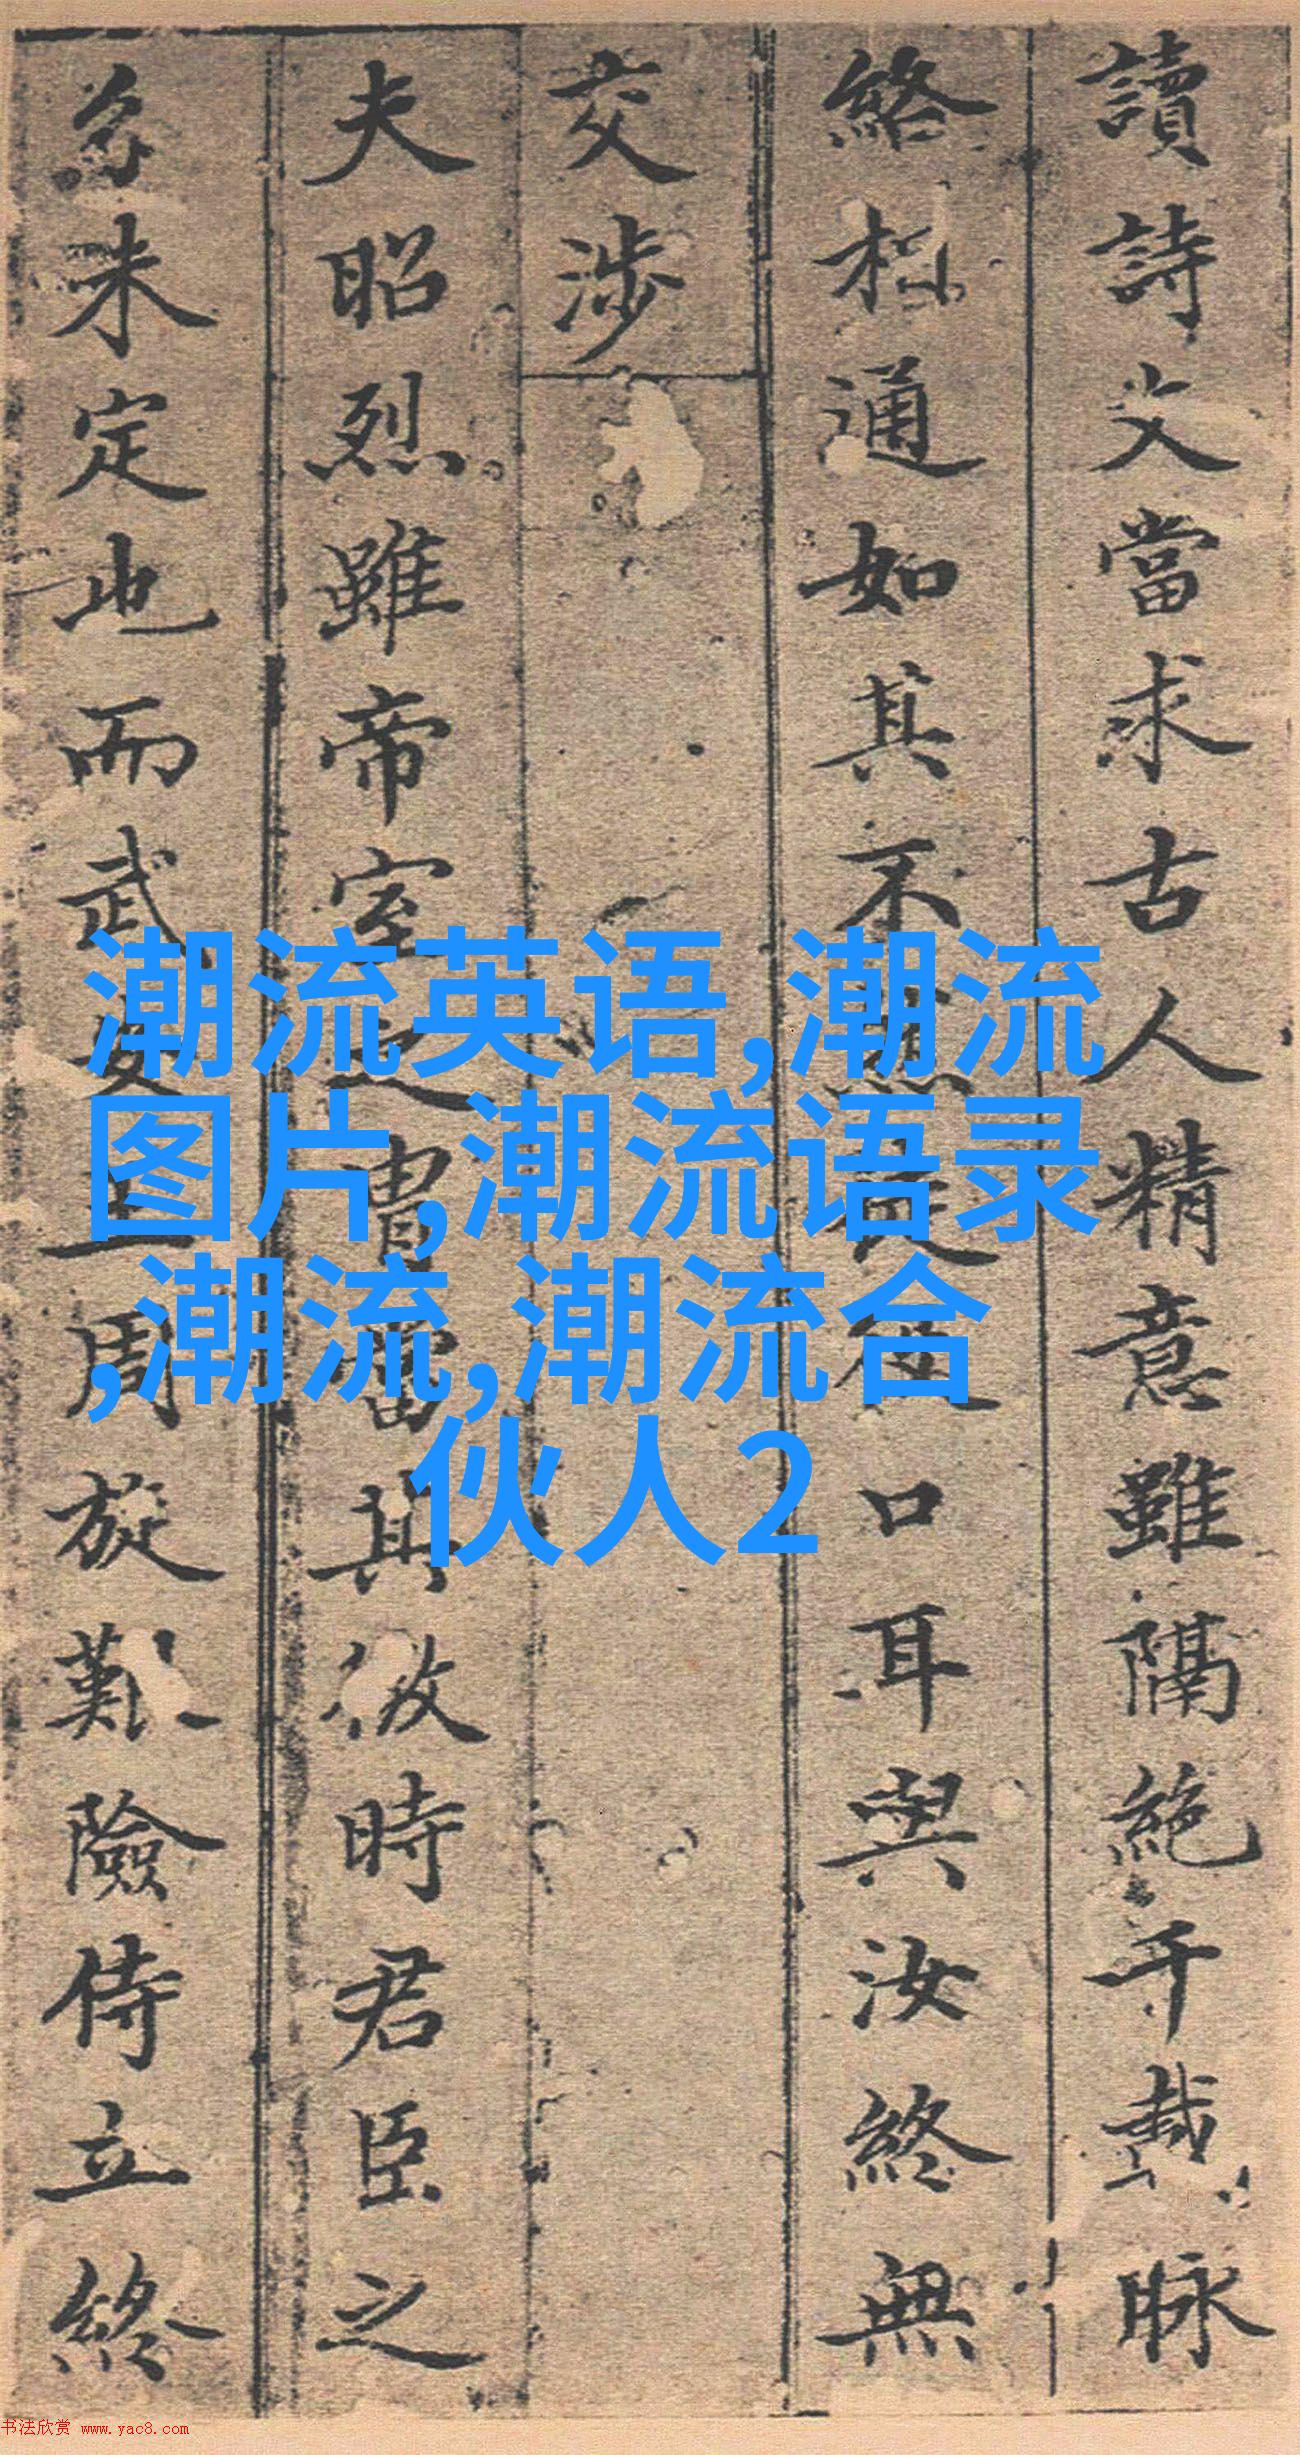 讀詩文當求古人精意雖隔絶千載脉
絡相通如其不然徒口耳與汝終無
交涉
夫昭烈雖帝室之冑當其微時君臣之
分未定也而武安王周旋艱險侍立終
潮流英语,潮流
图片,潮流语录
,潮流,潮流合
伙人2
书法欣赏 www.yac8.com